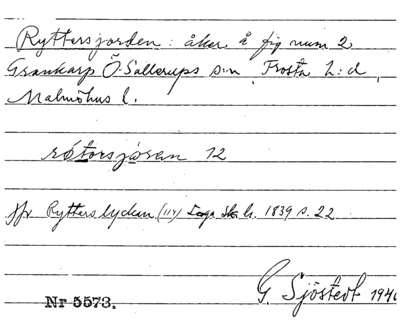 Ryttersjorden: åker å fig num 2
Grankarp Ö. Sallerups s:n, Frosta h:d,
Malmöhus l.
rótorsjóran 12
jfr Rytterslyckan (114) Laga sk. h. 1839 s. 22
Nr 5573.
G. Sjöstedt 1940